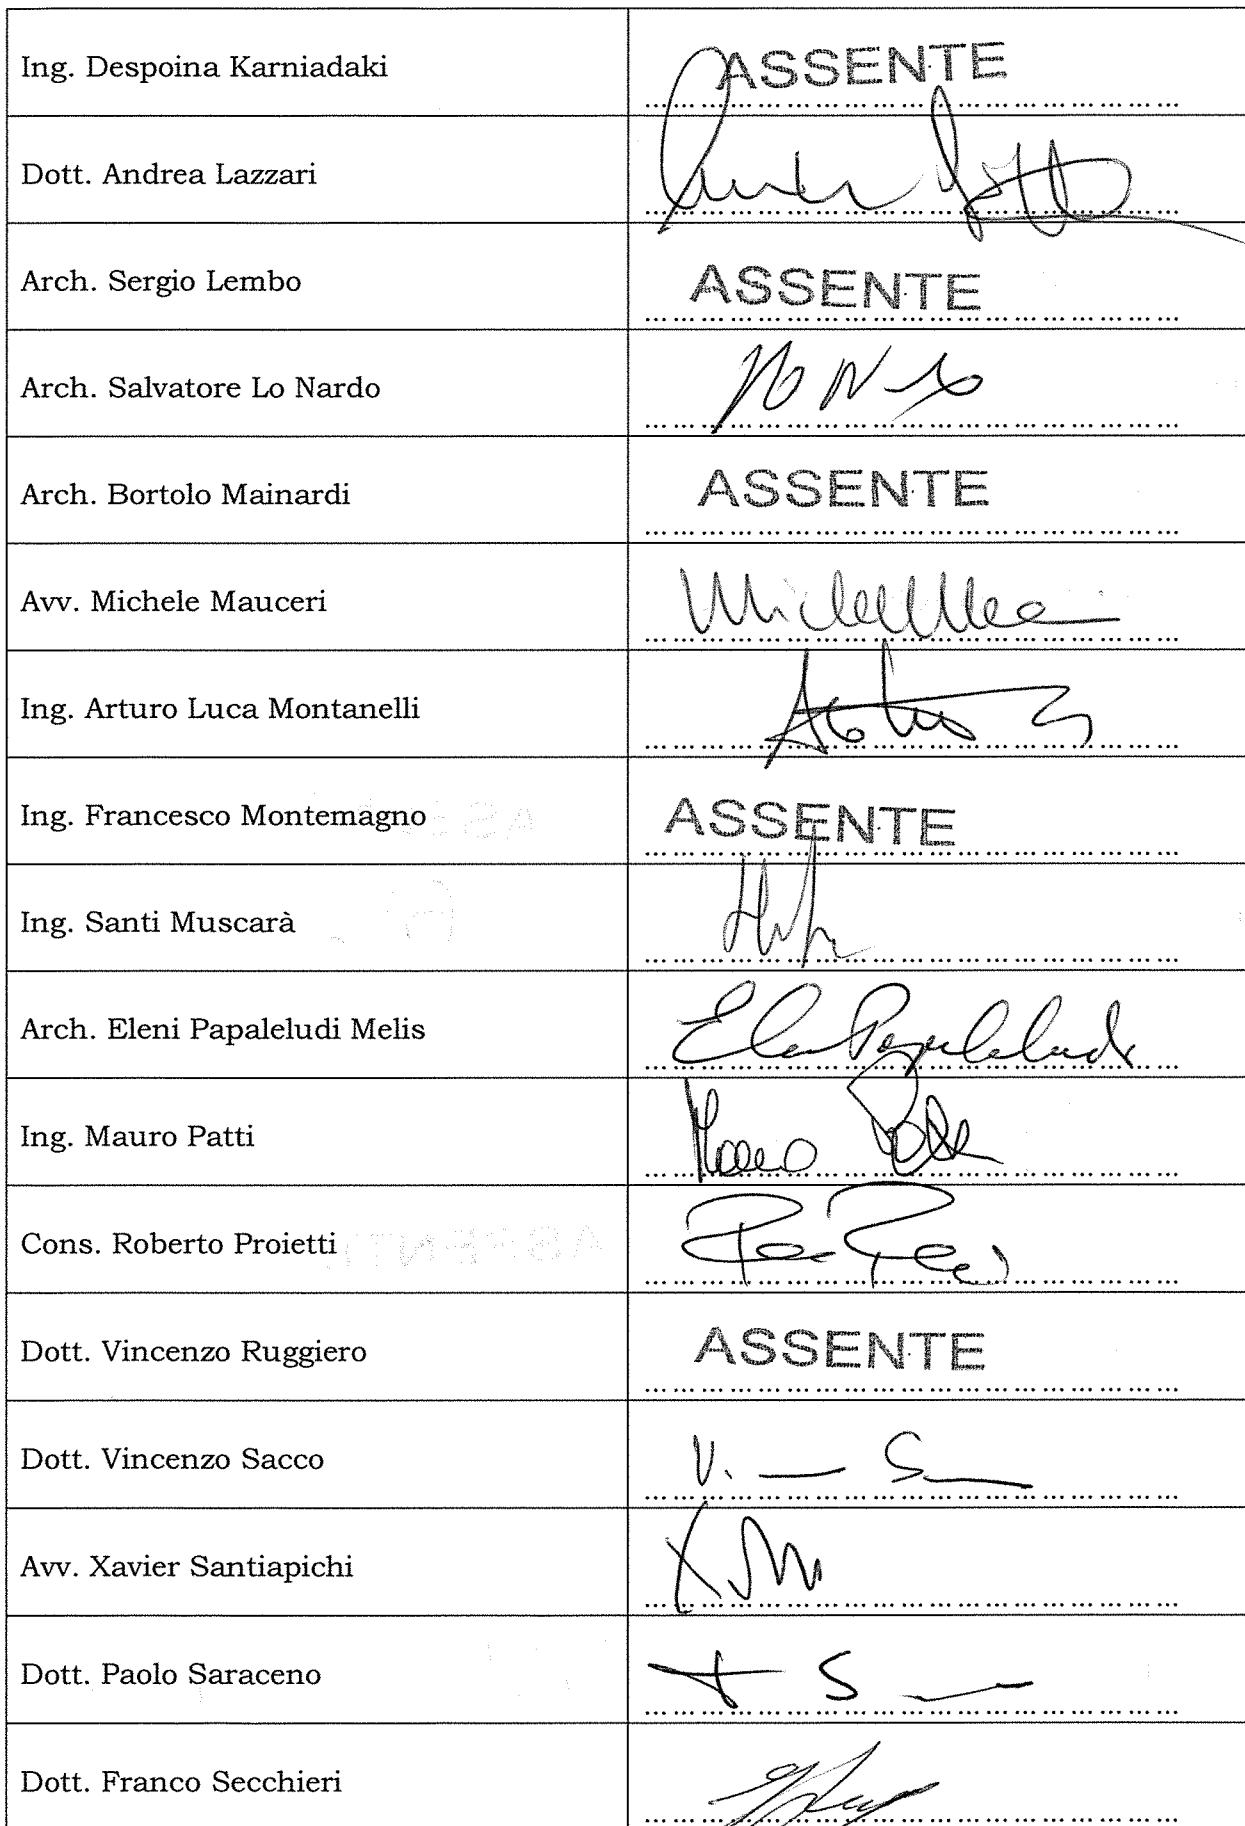 Ing. Despoina Karniadaki ASSENTE
Dott. Andrea Lazzari
Arch. Sergio Lembo ASSENTE
Arch. Salvatore Lo Nardo
Arch. Bortolo Mainardi ASSENTE
Avv. Michele Mauceri
Ing. Arturo Luca Montanelli
Ing. Francesco Montemagno ASSENTE
Ing. Santi Muscarà
Arch. Eleni Papaleludi Melis
Ing. Mauro Patti
Cons. Roberto Proietti
Dott. Vincenzo Ruggiero ASSENTE
Dott. Vincenzo Sacco
Avv. Xavier Santiapichi
Dott. Paolo Saraceno
Dott. Franco Secchieri